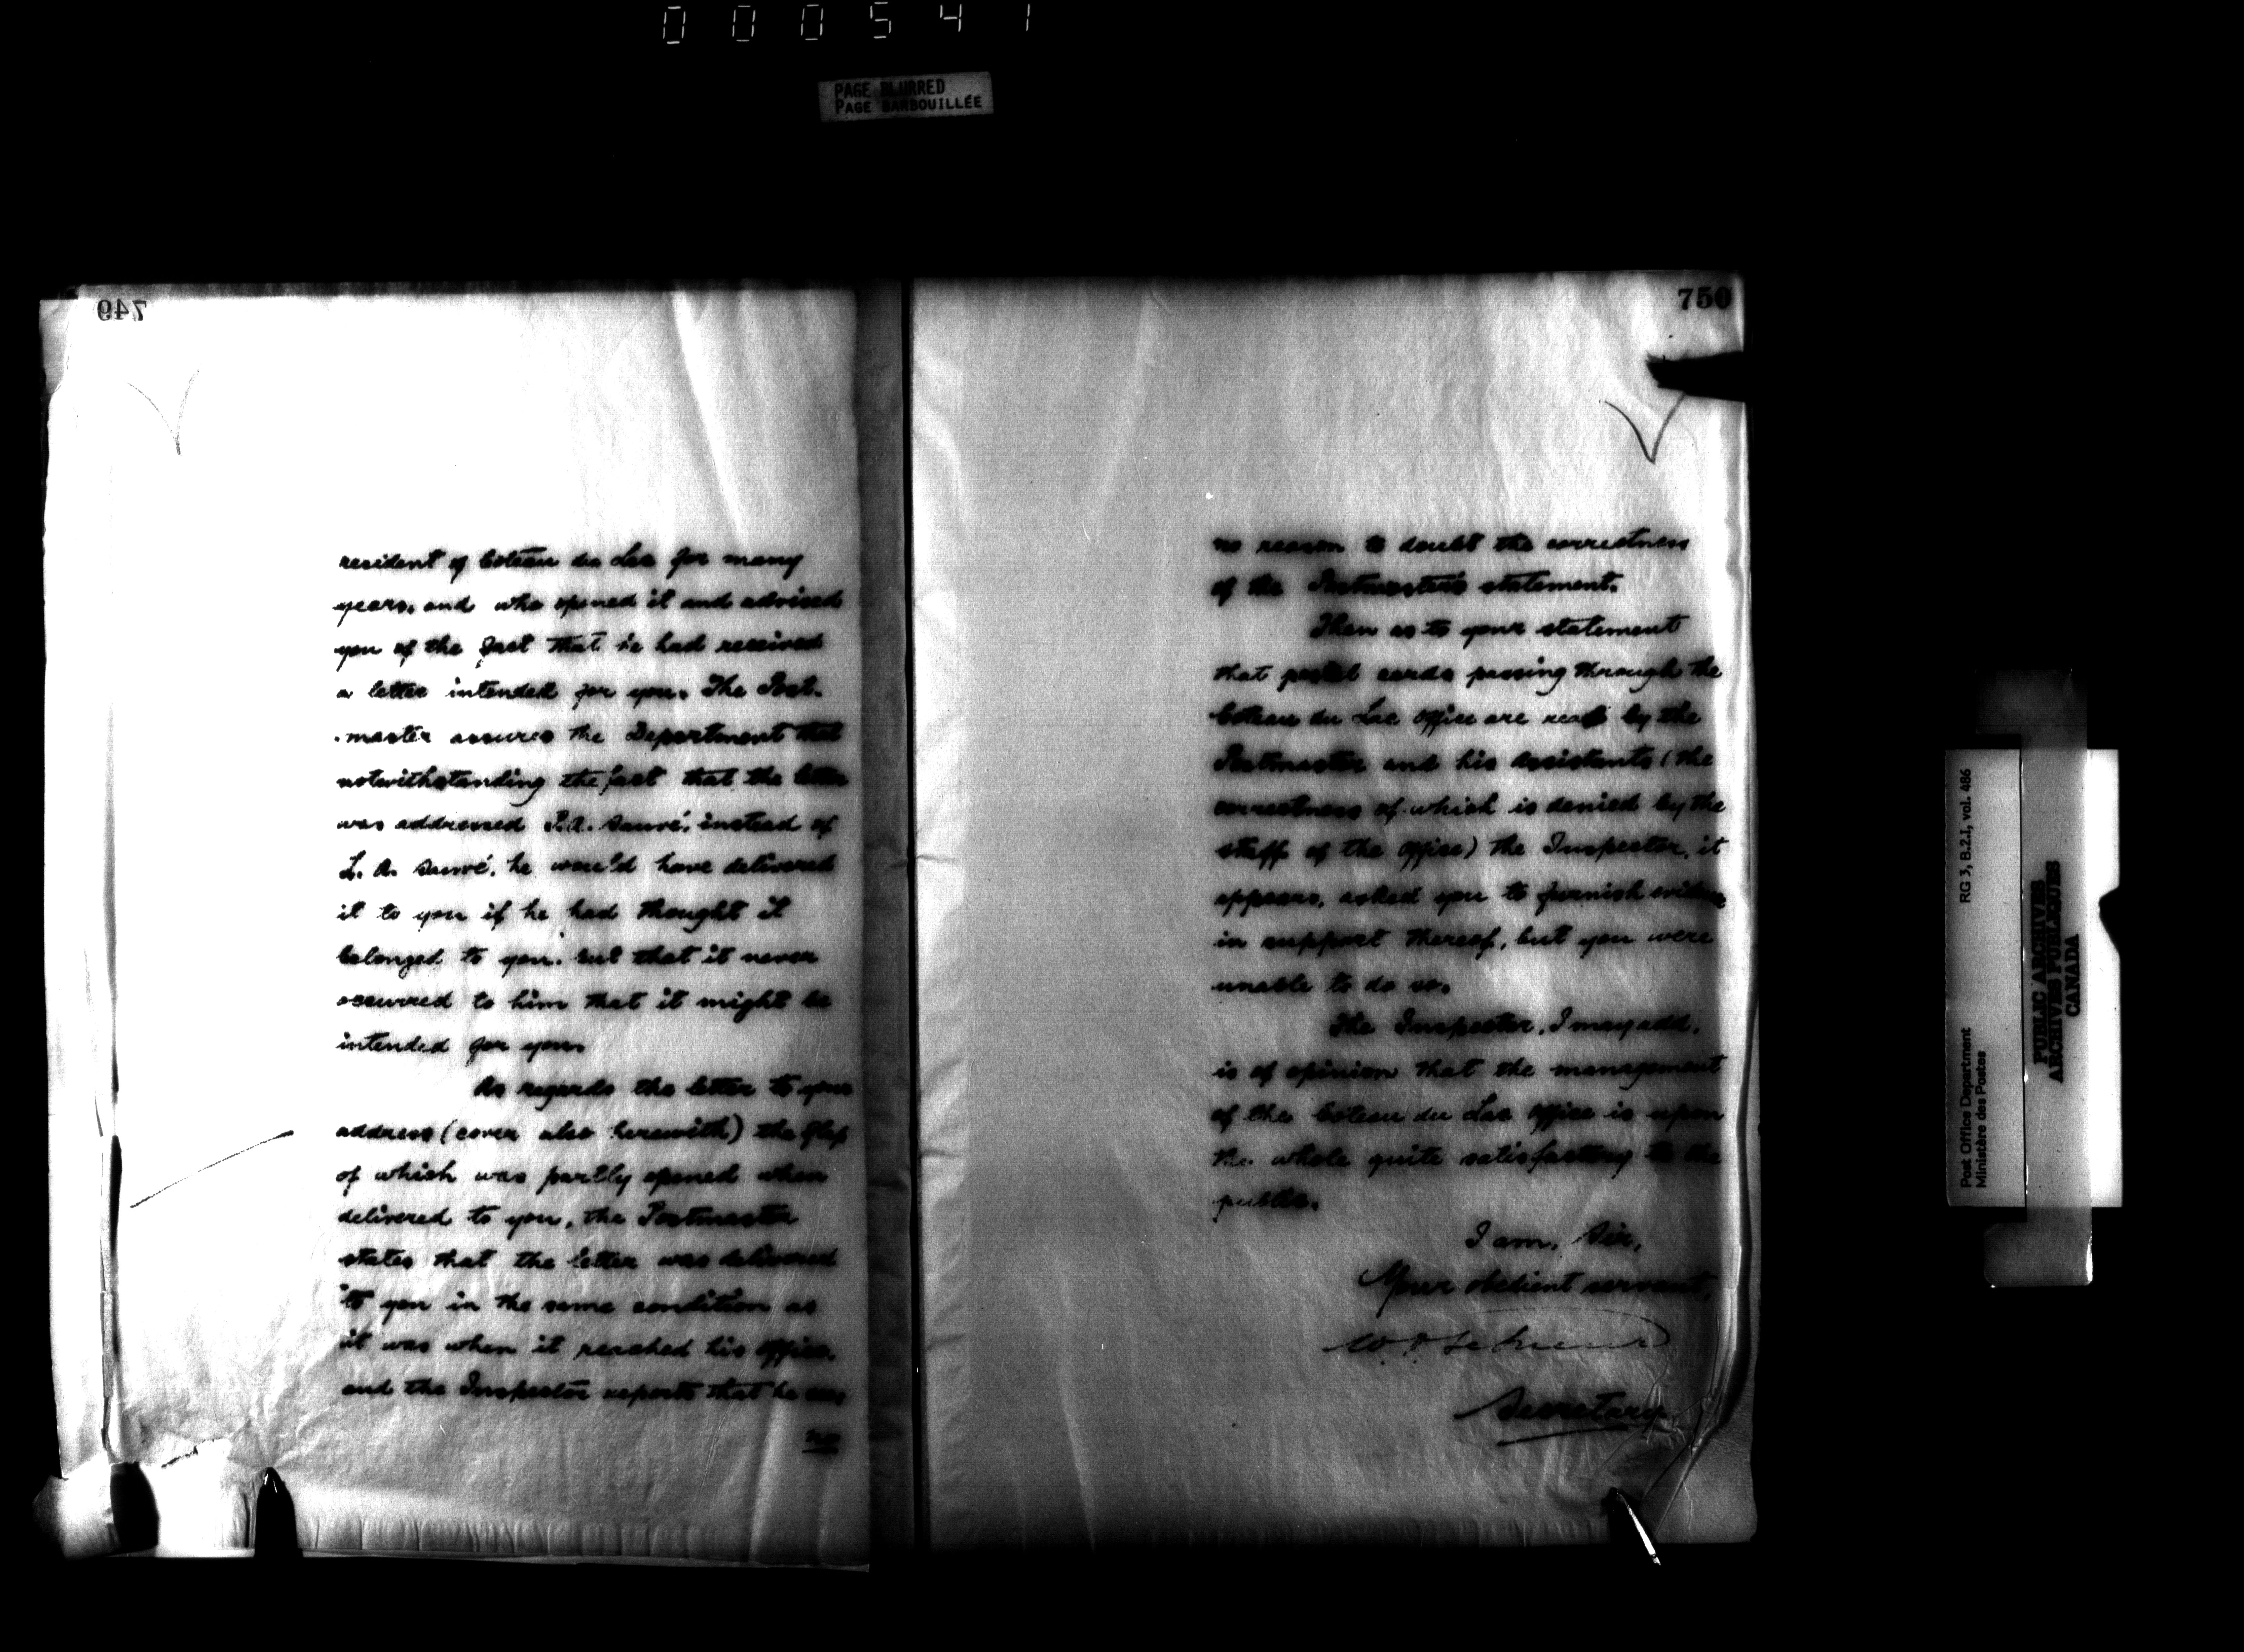 000541
PAGE BLURRED
PAGE BARBOUILLÉE
749
resident of Coteau du Lac for many
years, and who opened it and advised
you of the fact that he had received
a letter intended for you. The Post-
-master assures the Department that
notwithstanding the fact that the letter
was addressed P.A. Sauvé, instead of
L. A. Sauvé, he would have delivered
it to you if he had thought it
belonged to you, but that it never
occurred to him that it might be
intended for you.
As regards the letter to your
address (cover also herewith) the flap
of which was partly opened when
delivered to you, the Postmaster
states that the letter was delivered
to you in the same condition as
it was when it reached his office,
and the Inspector reports that he has
no
750
no reason to doubt the correctness
of the Postmaster's statement.
Then as to your statement
that postal cards passing through the
Coteau du Lac office are read by the
Postmaster and his assistants (the
correctness of which is denied by the
staff of the office) the Inspector, it
appears, asked you to furnish evidence
in support thereof, but you were
unable to do so.
The Inspector, I may add,
is of opinion that the management
of the Coteau du Lac office is upon
the whole quite satisfactory to the
public.
I am, Sir,
Your obedient servant,
Secretary
Post Office Department RG 3, B.2.I, vol. 486
Ministère des Postes
PUBLIC ARCHIVES
ARCHIVES PUBLIQUES
CANADA